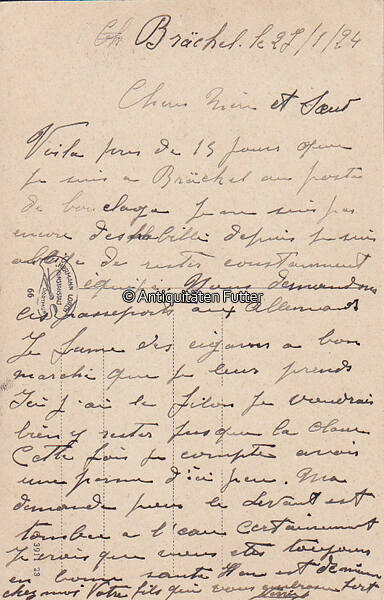 Brächel. le 27/1/24
Chers Frère et Sœur
Voila pres de 15 jours que
je suis a Brächel au poste
de bouclage Je ne suis pas
encore deshabillé depuis je suis
de rester constamment
équipé. Nous demandons
les passeports aux Allemands
Je fume des cigares a bon
marché que je leur prends
Ici j'ai le filon je voudrais
bien y rester jusque la classe
Cette fois je compte avoir
une perme d'ici peu. Ma
demande pour le Levant est
tombee a l'eau certainement
Je crois que vous etes toujours
en bonne santé Il en est de même
chez moi Votre fils qui vous embrasse fort
© Antiquitäten Futter